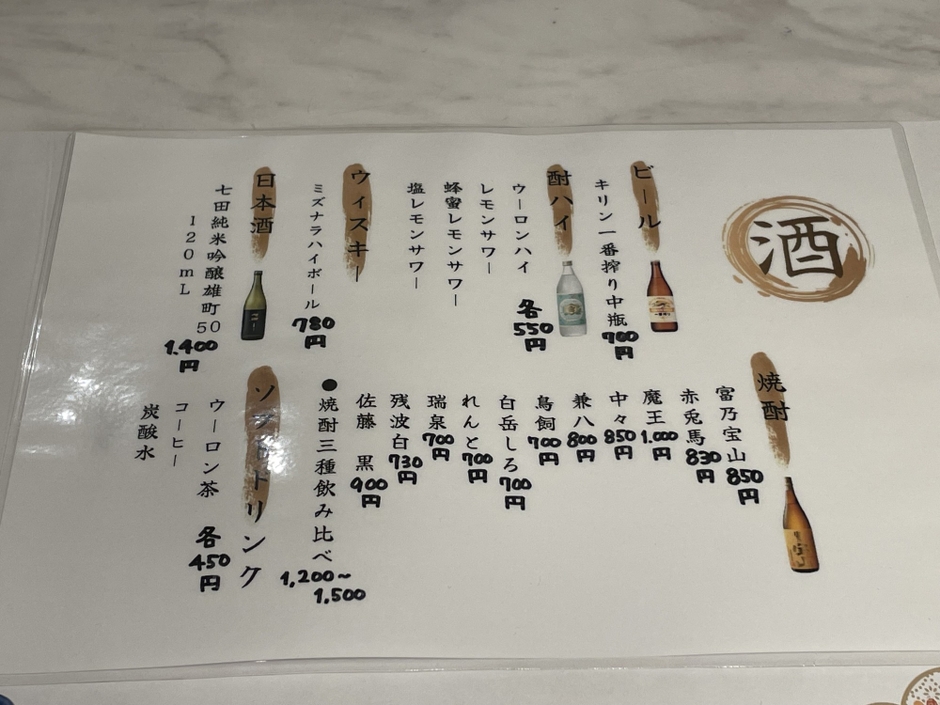 酒
ビール
キリン一番搾り中瓶
700
円
酎ハイ
ウーロンハイ
各
550
円
レモンサワー
蜂蜜レモンサワー
塩レモンサワー
ウィスキー
ミズナラハイボール
780
円
日本酒
七田純米吟醸雄町50
50
120mL
1.400
円
焼酎
富乃宝山
850
円
赤兎馬
830
円
魔王
1.000
円
中々
850
円
兼八
800
円
鳥飼
700
円
白岳しろ
700
円
れんと
700
円
瑞泉
700
円
残波白
730
円
佐藤 黒
900
円
●焼酎三種飲み比べ
1,200～
1,500
ソフトドリンク
ウーロン茶
各
450
円
コーヒー
炭酸水